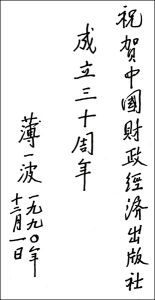 祝贺中國财政經济出版社
成立三十周年
薄一波
一九九〇年
十二月一日